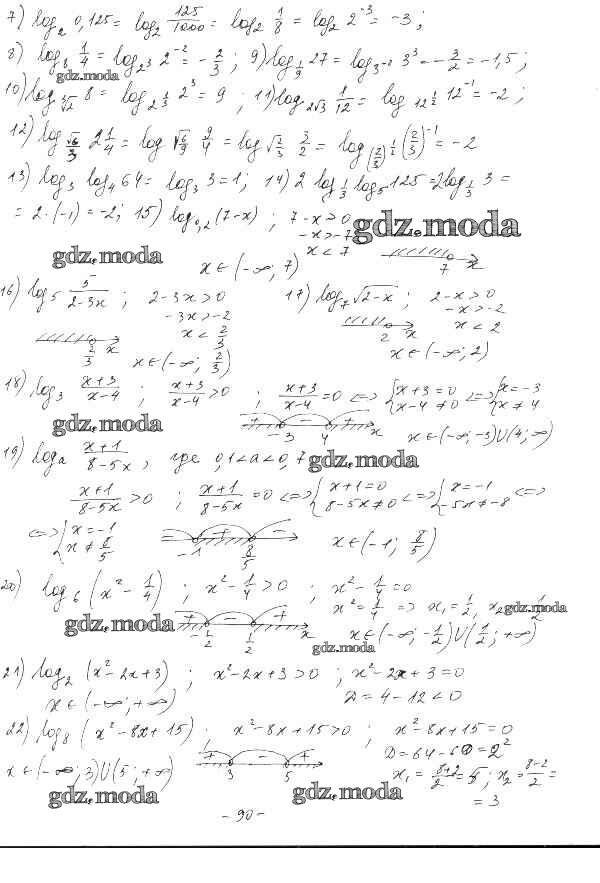 7) log₂ 0,125 = log₂ 125/1000 = log₂ 1/8 = log₂ 2⁻³ = -3 ;
8) log₈ 1/4 = log₂³ 2⁻² = -2/3 ; 9) log_{1/9} 27 = log_{3⁻²} 3³ = -3/2 = -1,5 ;
gdz.moda
10) log_{∛2} 8 = log_{2^{1/3}} 2³ = 9 ; 11) log_{2√3} 1/12 = log_{12^{1/2}} 12⁻¹ = -2 ;
12) log_{√6/3} 2 1/4 = log_{√6/9} 9/4 = log_{√2/3} 3/2 = log_{(2/3)^{1/2}} (2/3)⁻¹ = -2
13) log₃ log₄ 64 = log₃ 3 = 1; 14) 2 log_{1/3} log₅ 125 = 2 log_{1/3} 3 =
= 2·(-1) = -2; 15) log_{0,2} (7-x) ; 7-x > 0
gdz.moda
-x > -7
gdz.moda
x < 7
7 x
x ∈ (-∞; 7)
16) log₅ 5/(2-3x) ; 2-3x > 0 17) log₇ √(2-x) ; 2-x > 0
-3x > -2 -x > -2
x < 2/3 x < 2
2/3 x 2 x
x ∈ (-∞; 2/3) x ∈ (-∞; 2)
18) log₃ (x+3)/(x-4) ; (x+3)/(x-4) > 0 ; (x+3)/(x-4) = 0 <=> { x+3 = 0 x-4 ≠ 0 <=> { x = -3 x ≠ 4
gdz.moda
+ - +
-3 4 x x ∈ (-∞; -3) U (4; ∞)
19) logₐ (x+1)/(8-5x) , где 0,1 < a < 0,7
gdz.moda
(x+1)/(8-5x) > 0 ; (x+1)/(8-5x) = 0 <=> { x+1 = 0 8-5x ≠ 0 <=> { x = -1 -5x ≠ -8 <=>
<=> { x = -1 x ≠ 8/5
- + -
-1 8/5
x ∈ (-1; 8/5)
20) log₆ (x² - 1/4) ; x² - 1/4 > 0 ; x² - 1/4 = 0
x² = 1/4 => x₁ = 1/2, x₂ 1/2
gdz.moda
gdz.moda
+ - +
-1/2 1/2 x x ∈ (-∞; -1/2) U (1/2; +∞)
gdz.moda
21) log₂ (x²-2x+3) ; x²-2x+3 > 0 ; x²-2x+3 = 0
x ∈ (-∞; +∞) D = 4-12 < 0
22) log₈ (x²-8x+15) ; x²-8x+15 > 0 ; x²-8x+15 = 0
D = 64-60 = 2²
x ∈ (-∞; 3) U (5; +∞)
+ - +
3 5
x₁ = (8+2)/2 = 5; x₂ = (8-2)/2 =
= 3
gdz.moda
gdz.moda
- 90 -